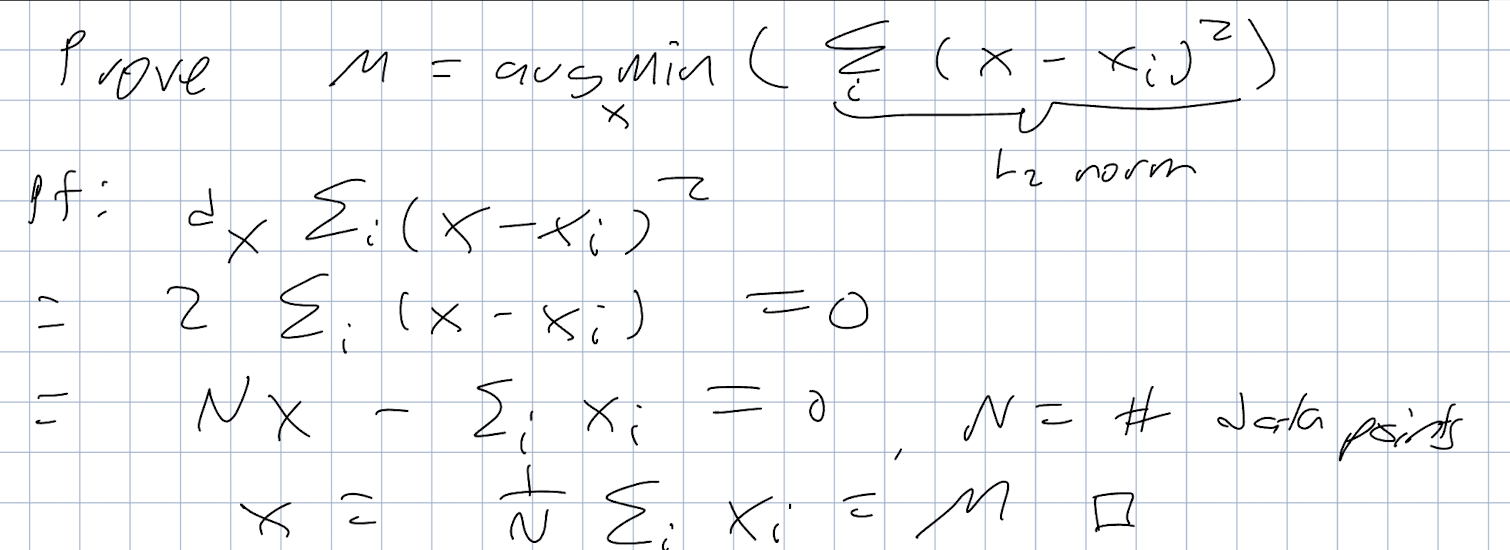 Prove M = argmin_x ( Σ_i (x - x_i)^2 )
L_2 norm
pf: d_x Σ_i (x - x_i)^2
= 2 Σ_i (x - x_i) = 0
= Nx - Σ_i x_i = 0, N = # data points
x = 1/N Σ_i x_i = M □